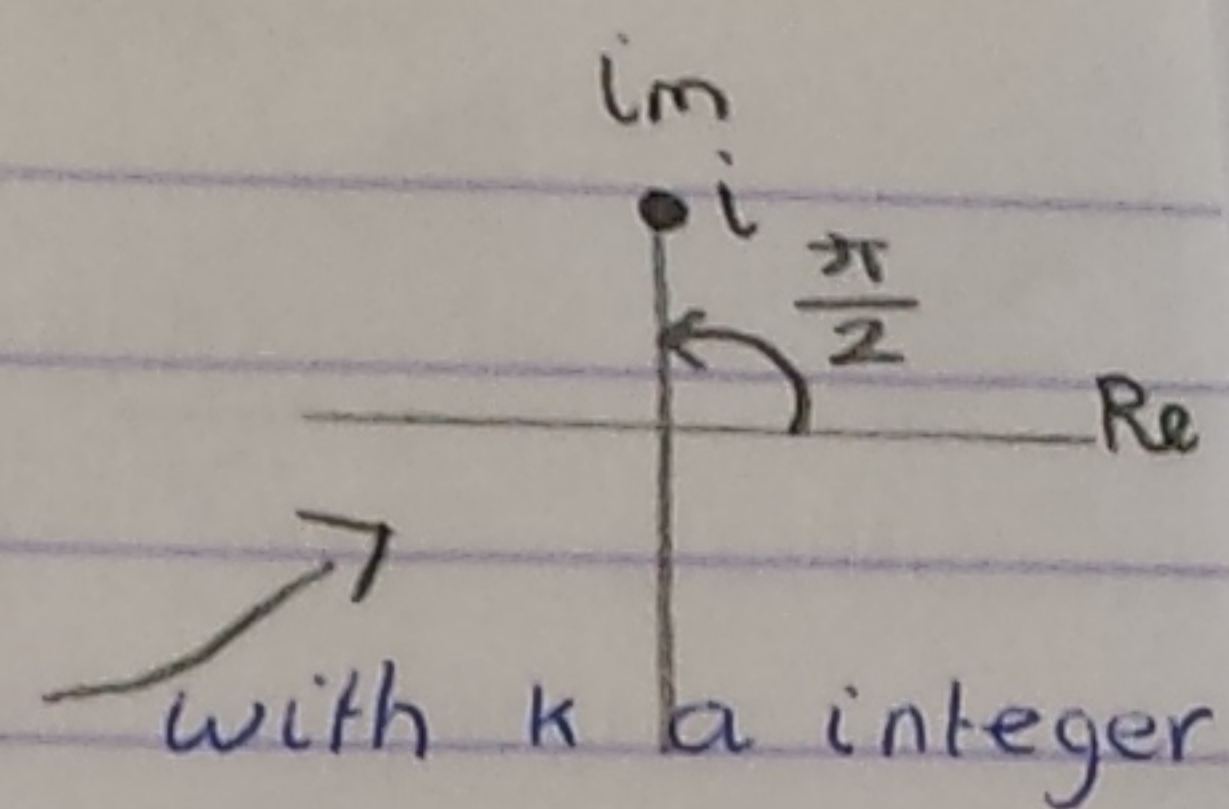 im
i
π
2
Re
with k a integer